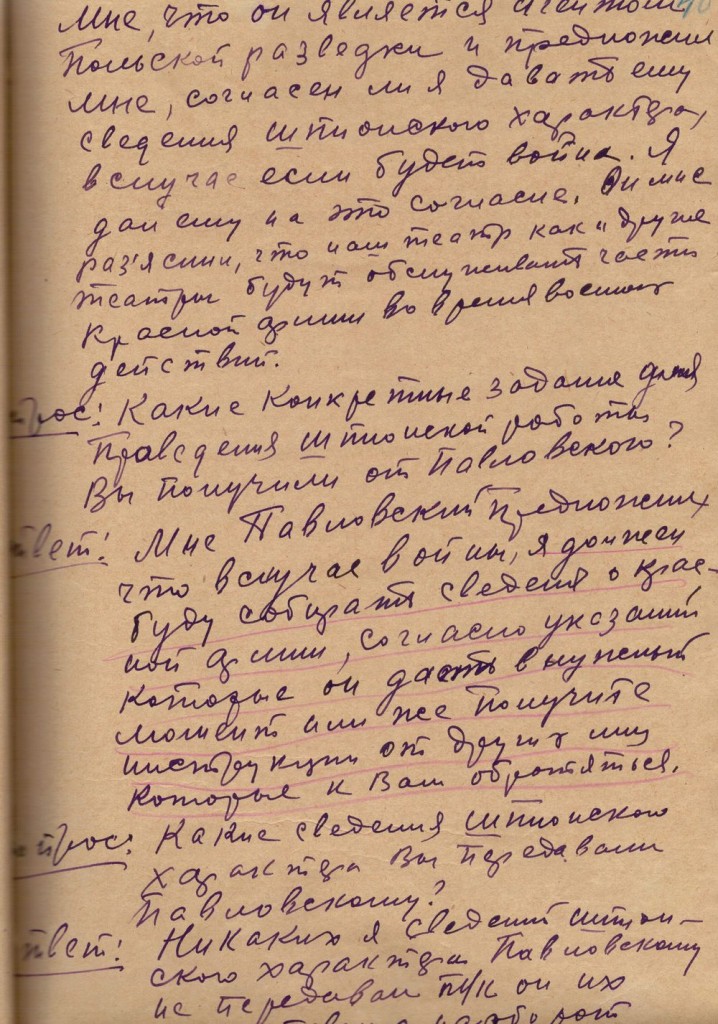 мне, что он является агентом
Польской разведки и предложил
мне, согласен ли я давать ему
сведения шпионского характера,
в случае если будет война. Я
дал ему на это согласие. Он мне
раз'яснил, что наш театр как и другие
театры будут обслуживать части
Красной армии во время военных
действий.
прос: Какие конкретные задания для
Проведения шпионской работы
Вы получили от Павловского?
твет: Мне Павловский предложил
что в случае войны, я должен
буду собирать сведения о крас-
ной армии, согласно указаний
которые он даст в нужный
момент или же получите
инструкции от других лиц
которые к Вам обратяться.
прос: Какие сведения шпионского
характера Вы передавали
Павловскому?
твет: Никаких я сведений шпион-
ского характера Павловскому
не передавал т/к он их